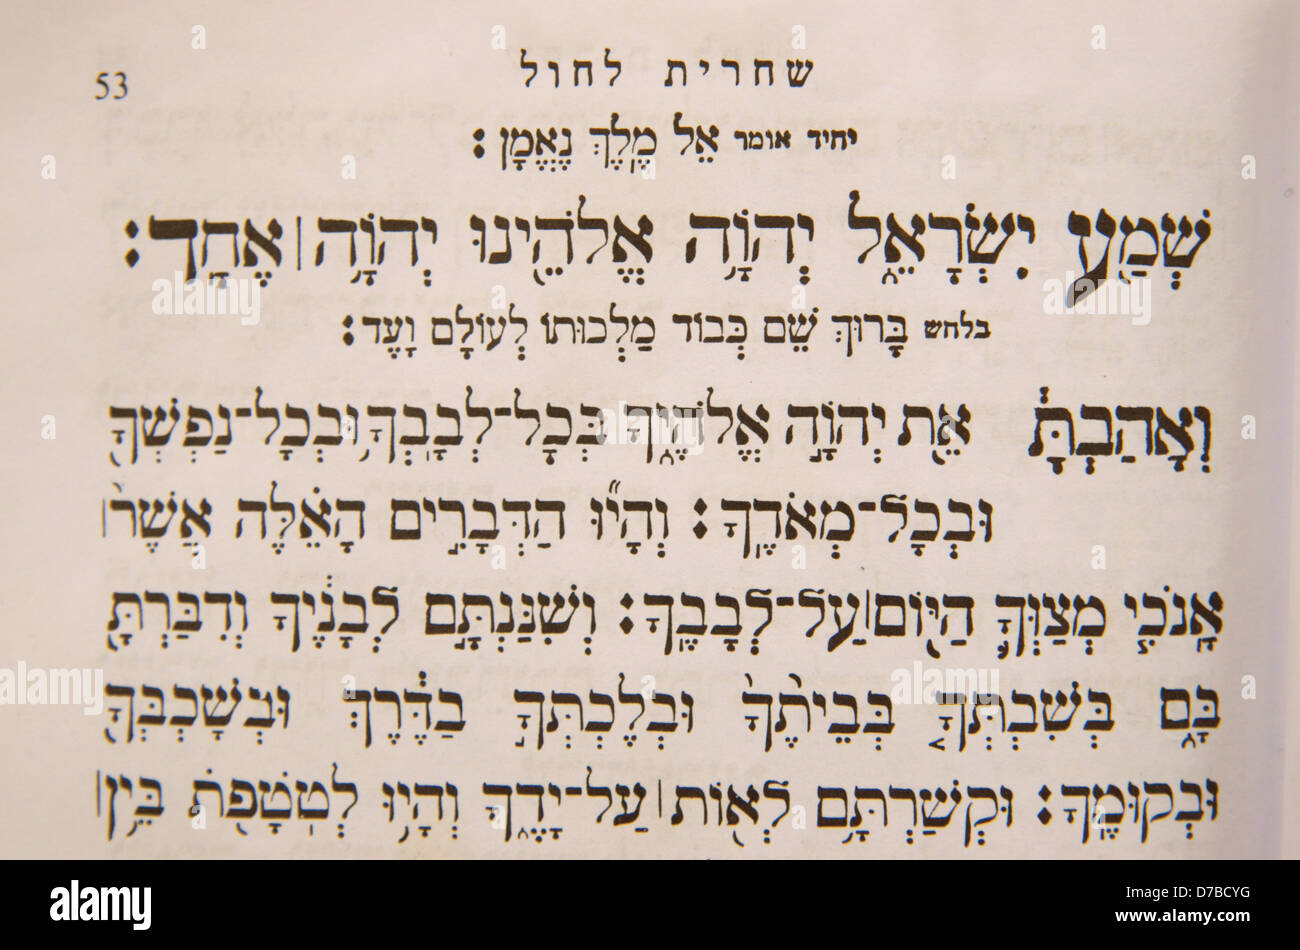 53
שחרית לחול
יחיד אומר אֵל מֶלֶךְ נֶאֱמָן׃
שְׁמַ֖ע יִשְׂרָאֵ֑ל יְהֹוָ֥ה אֱלֹהֵ֖ינוּ יְהֹוָ֥ה | אֶחָֽד׃
בלחש בָּרוּךְ שֵׁם כְּבוֹד מַלְכוּתוֹ לְעוֹלָם וָעֶד׃
וְאָהַבְתָּ֔ אֵ֖ת יְהֹוָ֣ה אֱלֹהֶ֑יךָ בְּכָל־לְבָבְךָ֥ וּבְכָל־נַפְשְׁךָ֖
וּבְכָל־מְאֹדֶֽךָ׃ וְהָי֞וּ הַדְּבָרִ֣ים הָאֵ֗לֶּה אֲשֶׁ֨ר |
אָֽנֹכִ֧י מְצַוְּךָ֛ הַיּ֖וֹם | עַל־לְבָבֶֽךָ׃ וְשִׁנַּנְתָּ֣ם לְבָנֶ֔יךָ וְדִבַּרְתָּ֖
בָּ֑ם בְּשִׁבְתְּךָ֤ בְּבֵיתֶ֙ךָ֙ וּבְלֶכְתְּךָ֣ בַדֶּ֔רֶךְ וּֽבְשָׁכְבְּךָ֖
וּבְקוּמֶֽךָ׃ וּקְשַׁרְתָּ֥ם לְא֖וֹת | עַל־יָדֶ֑ךָ וְהָי֥וּ לְטֹֽטָפֹ֖ת בֵּ֥ין |
alamy
Image ID: D7BCYG
www.alamy.com